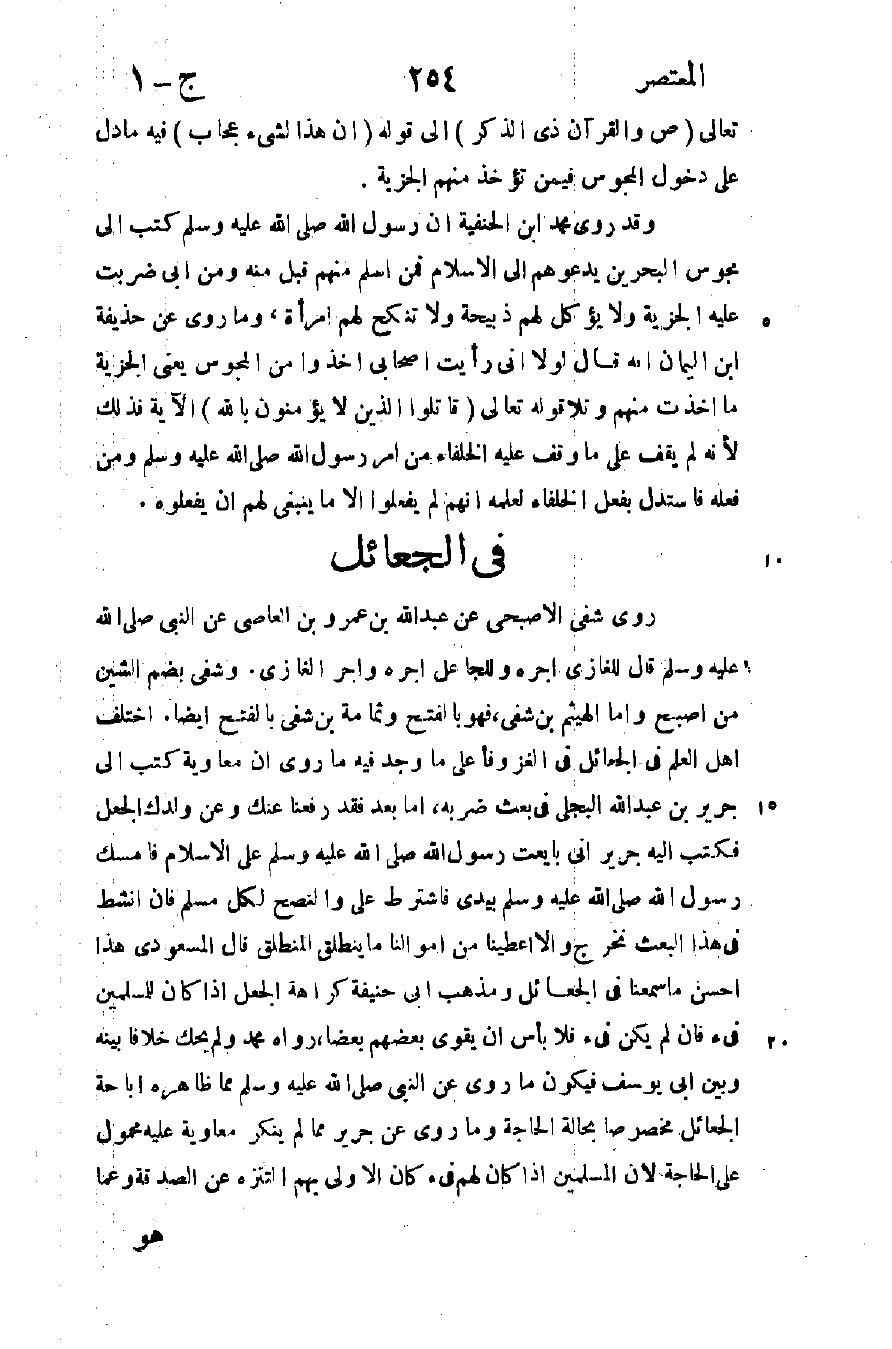 المعتصر ٢٥٤ ج - ١
تعالى (ص والقرآن ذى الذكر) الى قوله (ان هذا لشىء عجاب) فيه مادل
على دخول المجوس فيمن تؤخذ منهم الجزية .
وقد روى محمد ابن الحنفية ان رسول الله صلى الله عليه وسلم كتب الى
مجوس البحرين يدعوهم الى الاسلام فمن اسلم منهم قبل منه ومن ابى ضربت
عليه الجزية ولا يؤكل لهم ذبيحة ولا تنكح لهم امرأة ، وما روى عن حذيفة ٥
ابن اليمان انه قال لولا انى رأيت اصحابى اخذوا من المجوس يعنى الجزية
ما اخذت منهم وتلا قوله تعالى (قاتلوا الذين لا يؤمنون بالله) الآية فذلك
لأنه لم يقف على ما وقف عليه الخلفاء من امر رسول الله صلى الله عليه وسلم ومن
فعله فاستدل بفعل الخلفاء لعلمه انهم لم يفعلوا الا ما ينبغى لهم ان يفعلوه .
فى الجعائل ١٠
روى شفى الاصبحى عن عبدالله بن عمرو بن العاصى عن النبى صلى الله
عليه وسلم قال للغازى اجره وللجاعل اجره واجر الغازى . وشفى بضم الشين
من اصبح واما الهيثم بن شفى، فهو بالفتح وثمامة بن شفى بالفتح ايضا . اختلف
اهل العلم فى الجعائل فى الغزو فأعلى ما وجد فيه ما روى ان معاوية كتب الى
جرير بن عبدالله البجلى فى بعث ضربه، اما بعد فقد رفعنا عنك وعن ولدك الجعل ١٥
فكتب اليه جرير انى بايعت رسول الله صلى الله عليه وسلم على الاسلام فامسك
رسول الله صلى الله عليه وسلم بيدى فاشترط على والنصح لكل مسلم فان انشط
فى هذا البعث نخرج والا اعطينا من اموالنا ما ينطلق المنطلق قال المسعودى هذا
احسن ما سمعنا فى الجعائل ومذهب ابى حنيفة كراهة الجعل اذا كان للمسلمين
فىء فان لم يكن فىء فلا بأس ان يقوى بعضهم بعضا، رواه محمد ولم يحك خلافا بينه ٢٠
وبين ابى يوسف فيكون ما روى عن النبى صلى الله عليه وسلم مما ظاهره اباحة
الجعائل مخصوصا بحالة الحاجة وما روى عن جرير مما لم ينكر معاوية عليه محمول
على الحاجة لان المسلمين اذا كان لهم فىء كان الاولى بهم التنزه عن الصدقة وعما
هو